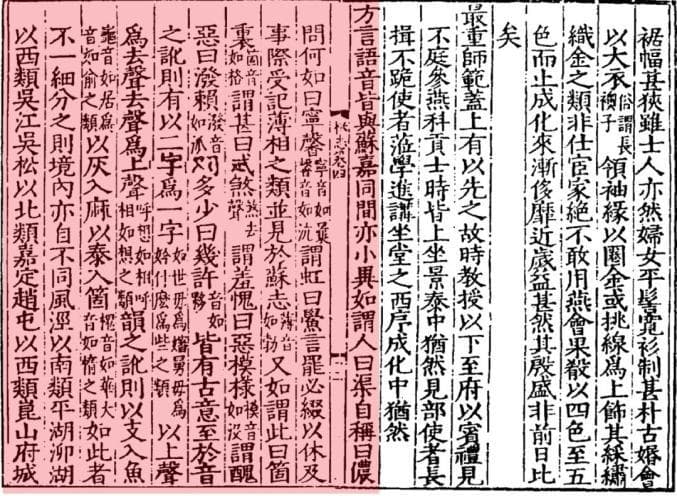 裾幅甚狹雖士人亦然婦女平髻寬衫制甚朴古婚會
以大衣俗謂長襖子領袖緣以圈金或挑線爲上飾其綵繡
織金之類非仕宦家絕不敢用燕會果殽以四色至五
色而止成化來漸侈靡近歲益甚然其殷盛非前日比
矣
最重師範蓋上有以先之故時教授以下至府以賓禮見
不庭參燕科貢士時皆上坐景泰中猶然見部使者長
揖不跪使者蒞學進講坐堂之西序成化中猶然
方言語音皆與蘇嘉同間亦小異如謂人曰渠自稱曰儂
志卷四
問何如曰寧馨寧音如曩馨音如沆謂虹曰鱟言罷必綴以休及
事際受記薄相之類並見於蘇志薄音如勃又如謂此曰箇
裏箇音如格謂甚曰忒煞煞去聲謂羞愧曰惡模樣模音如沒謂醜
惡曰潑賴潑音如派謂多少曰幾許音如夥皆有古意至於音
之訛則有以二字爲一字如世毋爲嬸舅毋爲妗什麽爲些之類以上聲
爲去聲去聲爲上聲呼想如相呼相如想之類韻之訛則以支入魚
龜音如居爲音如俞之類以灰入麻以泰入箇槐音如華大音如惰之類如此者
不一細分之則境內亦自不同風涇以南類平湖泖湖
以西類吳江吳松以北類嘉定趙屯以西類崑山府城